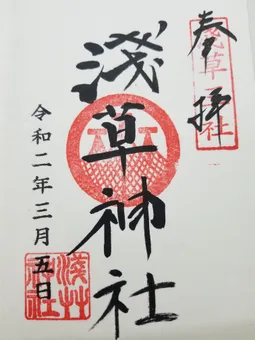 奉拝
浅草社
淺草神社
令和二年三月五日
淺草神社